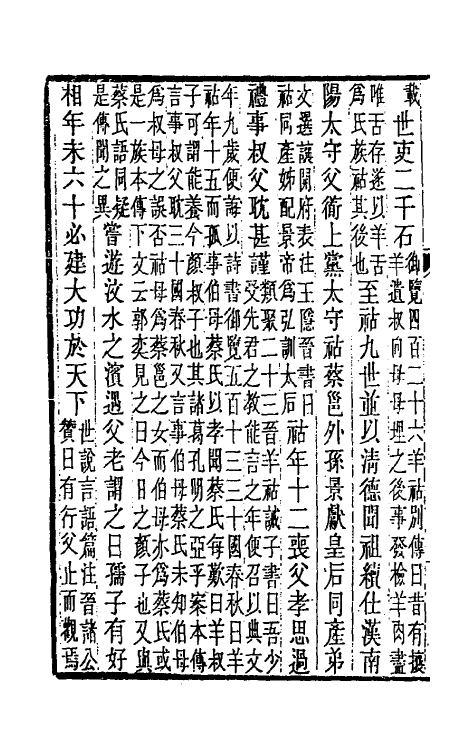 載
世吏二千石
御覽四百二十六羊祜別傳曰昔有攘
羊遺叔向母母埋之後事發檢羊肉盡
唯舌存遂以羊舌
爲氏族祜其後也
至祜九世並以清德聞祖續仕漢南
陽太守父衜上黨太守祜蔡邕外孫景獻皇后同產弟
文選讓開府表注王隱晉書曰
祜同產姊配景帝爲弘訓太后
祜年十二喪父孝思過
禮事叔父耽甚謹
類聚二十三晉羊祜誡子書曰吾少
受先君之教能言之年便召以典文
年九歲便誨以詩書御覽五百十三三十國春秋曰羊
祜年十五而孤事伯母蔡氏以孝聞蔡氏每歎曰羊叔
子可謂能養今顏叔子也其諸葛孔明之亞乎案本傳
言事叔父耽三十國春秋又言事伯母蔡氏未知伯母
爲叔母之誤否祜母爲蔡邕之女而伯母亦爲蔡氏或
是一族本傳下文云郭奕見之曰今日之顏子也又與
蔡氏語同疑
是傳聞之異
嘗遊汶水之濱遇父老謂之曰孺子有好
相年未六十必建大功於天下
世說言語篇注晉諸公
贊曰有行父止而觀焉